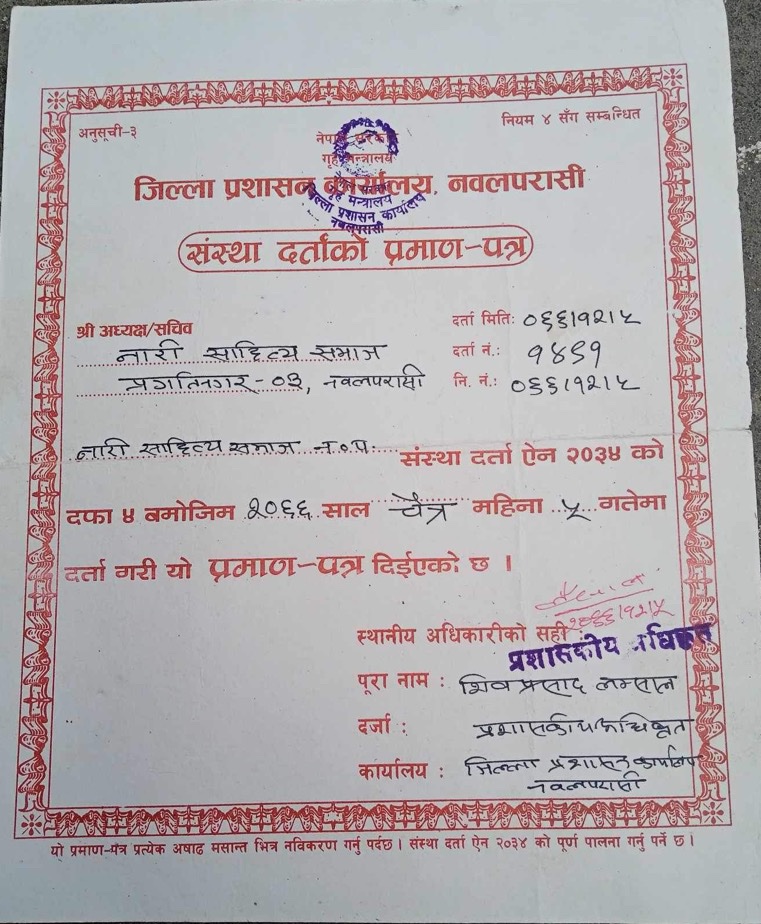 अनुसूची-३
नियम ४ सँग सम्बन्धित
नेपाल सरकार
गृह मन्त्रालय
जिल्ला प्रशासन कार्यालय, नवलपरासी
गृह मन्त्रालय
जिल्ला प्रशासन कार्यालय
नवलपरासी
संस्था दर्ताको प्रमाण-पत्र
श्री अध्यक्ष/सचिव
नारी साहित्य समाज
प्रगतिनगर - ०३, नवलपरासी
दर्ता मिति: ०६६।१२।५
दर्ता नं.:
नि. नं.: ०६६।१२।५
नारी साहित्य समाज न.प. संस्था दर्ता ऐन २०३४ को
दफा ४ बमोजिम २०६६ साल चैत्र महिना ५ गतेमा
दर्ता गरी यो प्रमाण-पत्र दिईएको छ ।
२०६६।१२।५
स्थानीय अधिकारीको सही :
प्रशासकीय अधिकृत
पूरा नाम : शिव प्रसाद लम्साल
दर्जा : प्रशासकीय अधिकृत
कार्यालय : जिल्ला प्रशासन कार्यालय
नवलपरासी
यो प्रमाण-पत्र प्रत्येक अषाढ मसान्त भित्र नविकरण गर्नु पर्दछ । संस्था दर्ता ऐन २०३४ को पूर्ण पालना गर्नु पर्ने छ ।